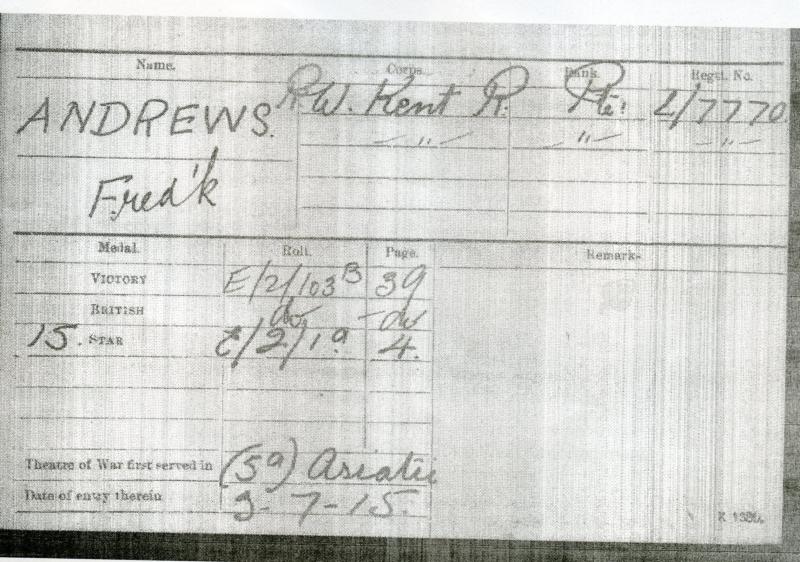 Name. Corps. Rank. Regtl. No.
ANDREWS. R. W. Kent R. Pte. L/7770
Fred'k — " — — " — — " —
Medal. Roll. Page. Remarks
VICTORY E/2/103B 39
BRITISH do do
15. STAR E/2/1a 4.
Theatre of War first served in (5a) Asiatic
Date of entry therein 3-7-15.
K 1380.